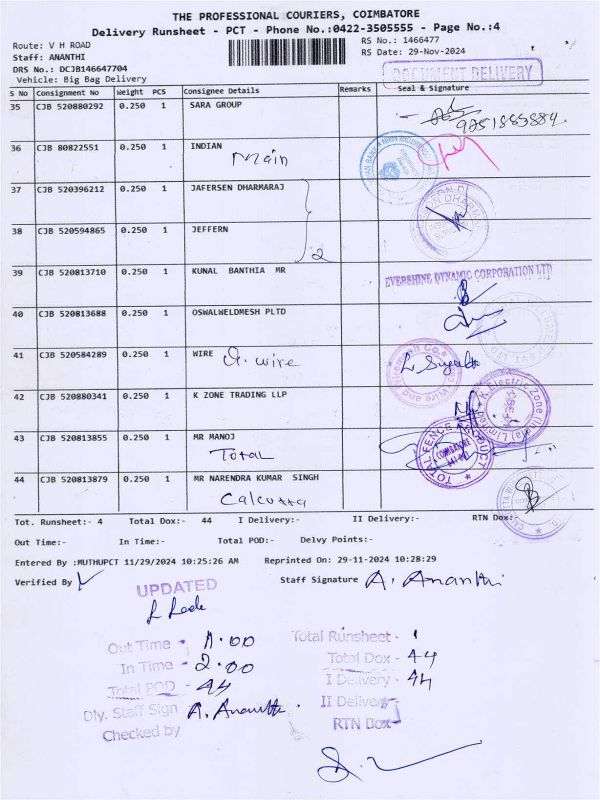 THE PROFESSIONAL COURIERS, COIMBATORE
Delivery Runsheet - PCT - Phone No.:0422-3505555 - Page No.:4
Route: V H ROAD
RS No.: 1466477
Staff: ANANTHI
RS Date: 29-Nov-2024
DRS No.: DCJB146647704
Vehicle: Big Bag Delivery
DOCUMENT DELIVERY
S No Consignment No Weight PCS Consignee Details Remarks Seal & Signature
35 CJB 520880292 0.250 1 SARA GROUP
36 CJB 80822551 0.250 1 INDIAN
Main
37 CJB 520396212 0.250 1 JAFERSEN DHARMARAJ
38 CJB 520594865 0.250 1 JEFFERN
2
39 CJB 520813710 0.250 1 KUNAL BANTHIA MR
EVERSHINE DYNAMIC CORPORATION LTD
40 CJB 520813688 0.250 1 OSWALWELDMESH PLTD
41 CJB 520584289 0.250 1 WIRE
42 CJB 520880341 0.250 1 K ZONE TRADING LLP
K Electric Zone (India) Limited
43 CJB 520813855 0.250 1 MR MANOJ
Total
TOTAL FENCE PRODUCT
COIMBATORE
44 CJB 520813879 0.250 1 MR NARENDRA KUMAR SINGH
Calcutta
Tot. Runsheet:- 4 Total Dox:- 44 I Delivery:- II Delivery:- RTN Dox:-
Out Time:- In Time:- Total POD:- Delvy Points:-
Entered By :MUTHUPCT 11/29/2024 10:25:26 AM Reprinted On: 29-11-2024 10:28:29
Verified By Staff Signature A. Ananthi
UPDATED
Out Time - 11.00
Total Runsheet - 1
In Time - 2.00
Total Dox - 44
Total POD - 44
I Delivery - 44
Dly. Staff Sign A. Ananthi
II Delivery -
Checked by
RTN Dox -